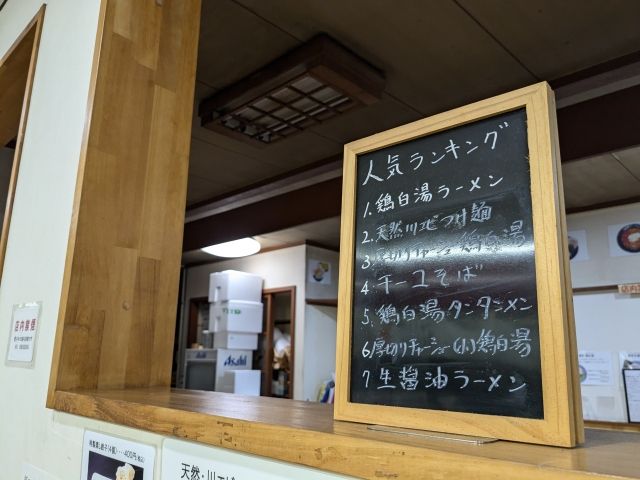 人気ランキング
1. 鶏白湯ラーメン
2. 天然川エビつけ麺
3 厚切りチャーシュー鶏白湯
4 チーユそば
5. 鶏白湯タンタンメン
6 厚切りチャーシュー(小)鶏白湯
7 生醤油ラーメン
店内禁煙
Asahi
Asahi
・・・400円(税込)
天然・川エビ
店内